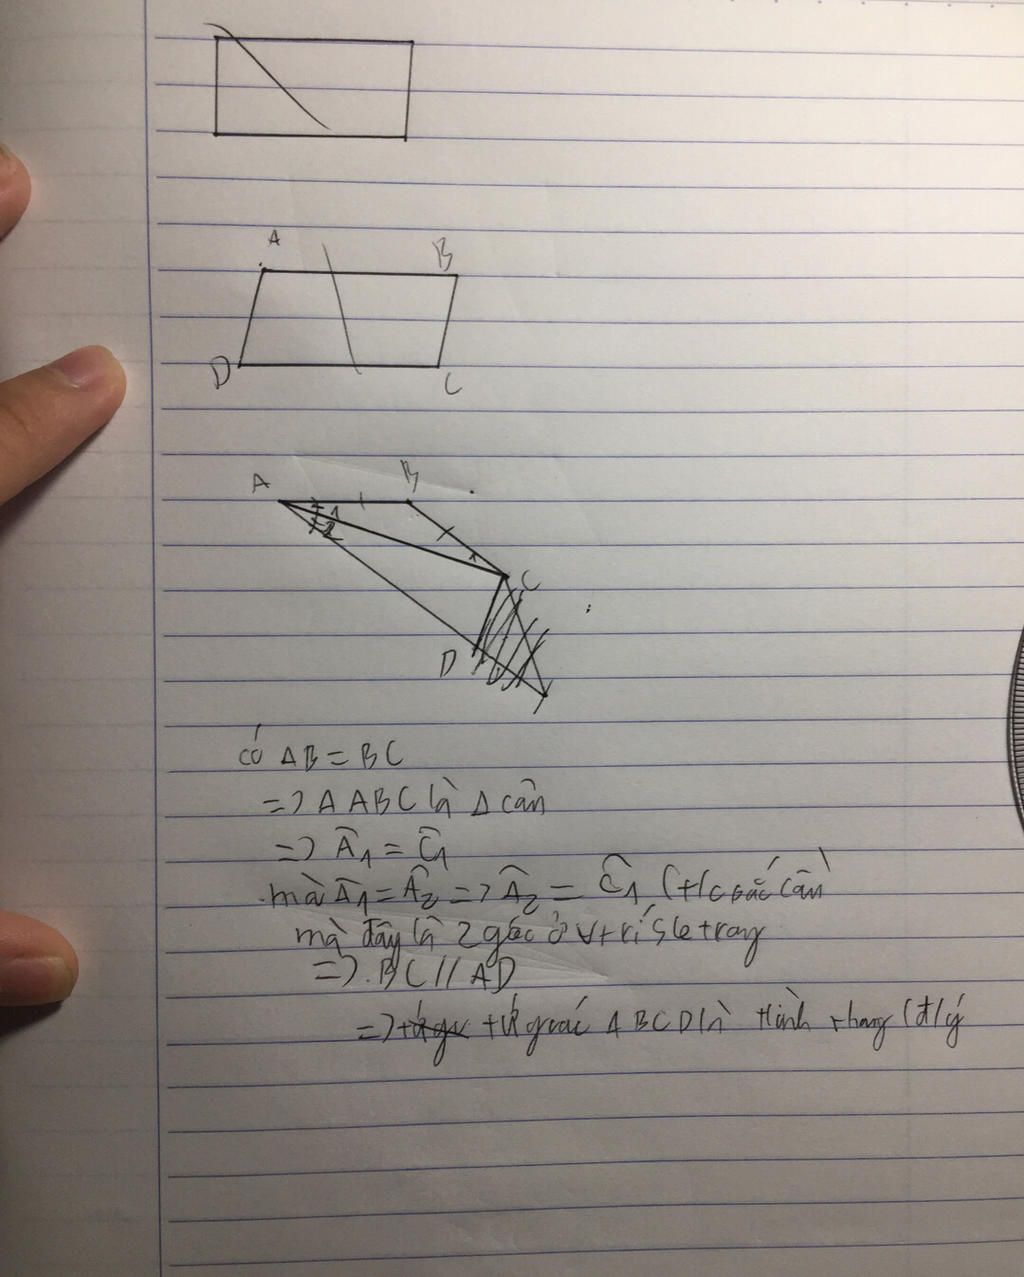 A B
D C
A B
1
2
1
C
D
có AB = BC
=> Δ ABC là Δ cân
=> Â1 = Ĉ1
mà Â1 = Â2 => Â2 = Ĉ1 (t/c
mà đây là 2 góc ở vị trí sle trong
=> BC // AD
=> tứ giác ABCD là hình thang (đ/lý